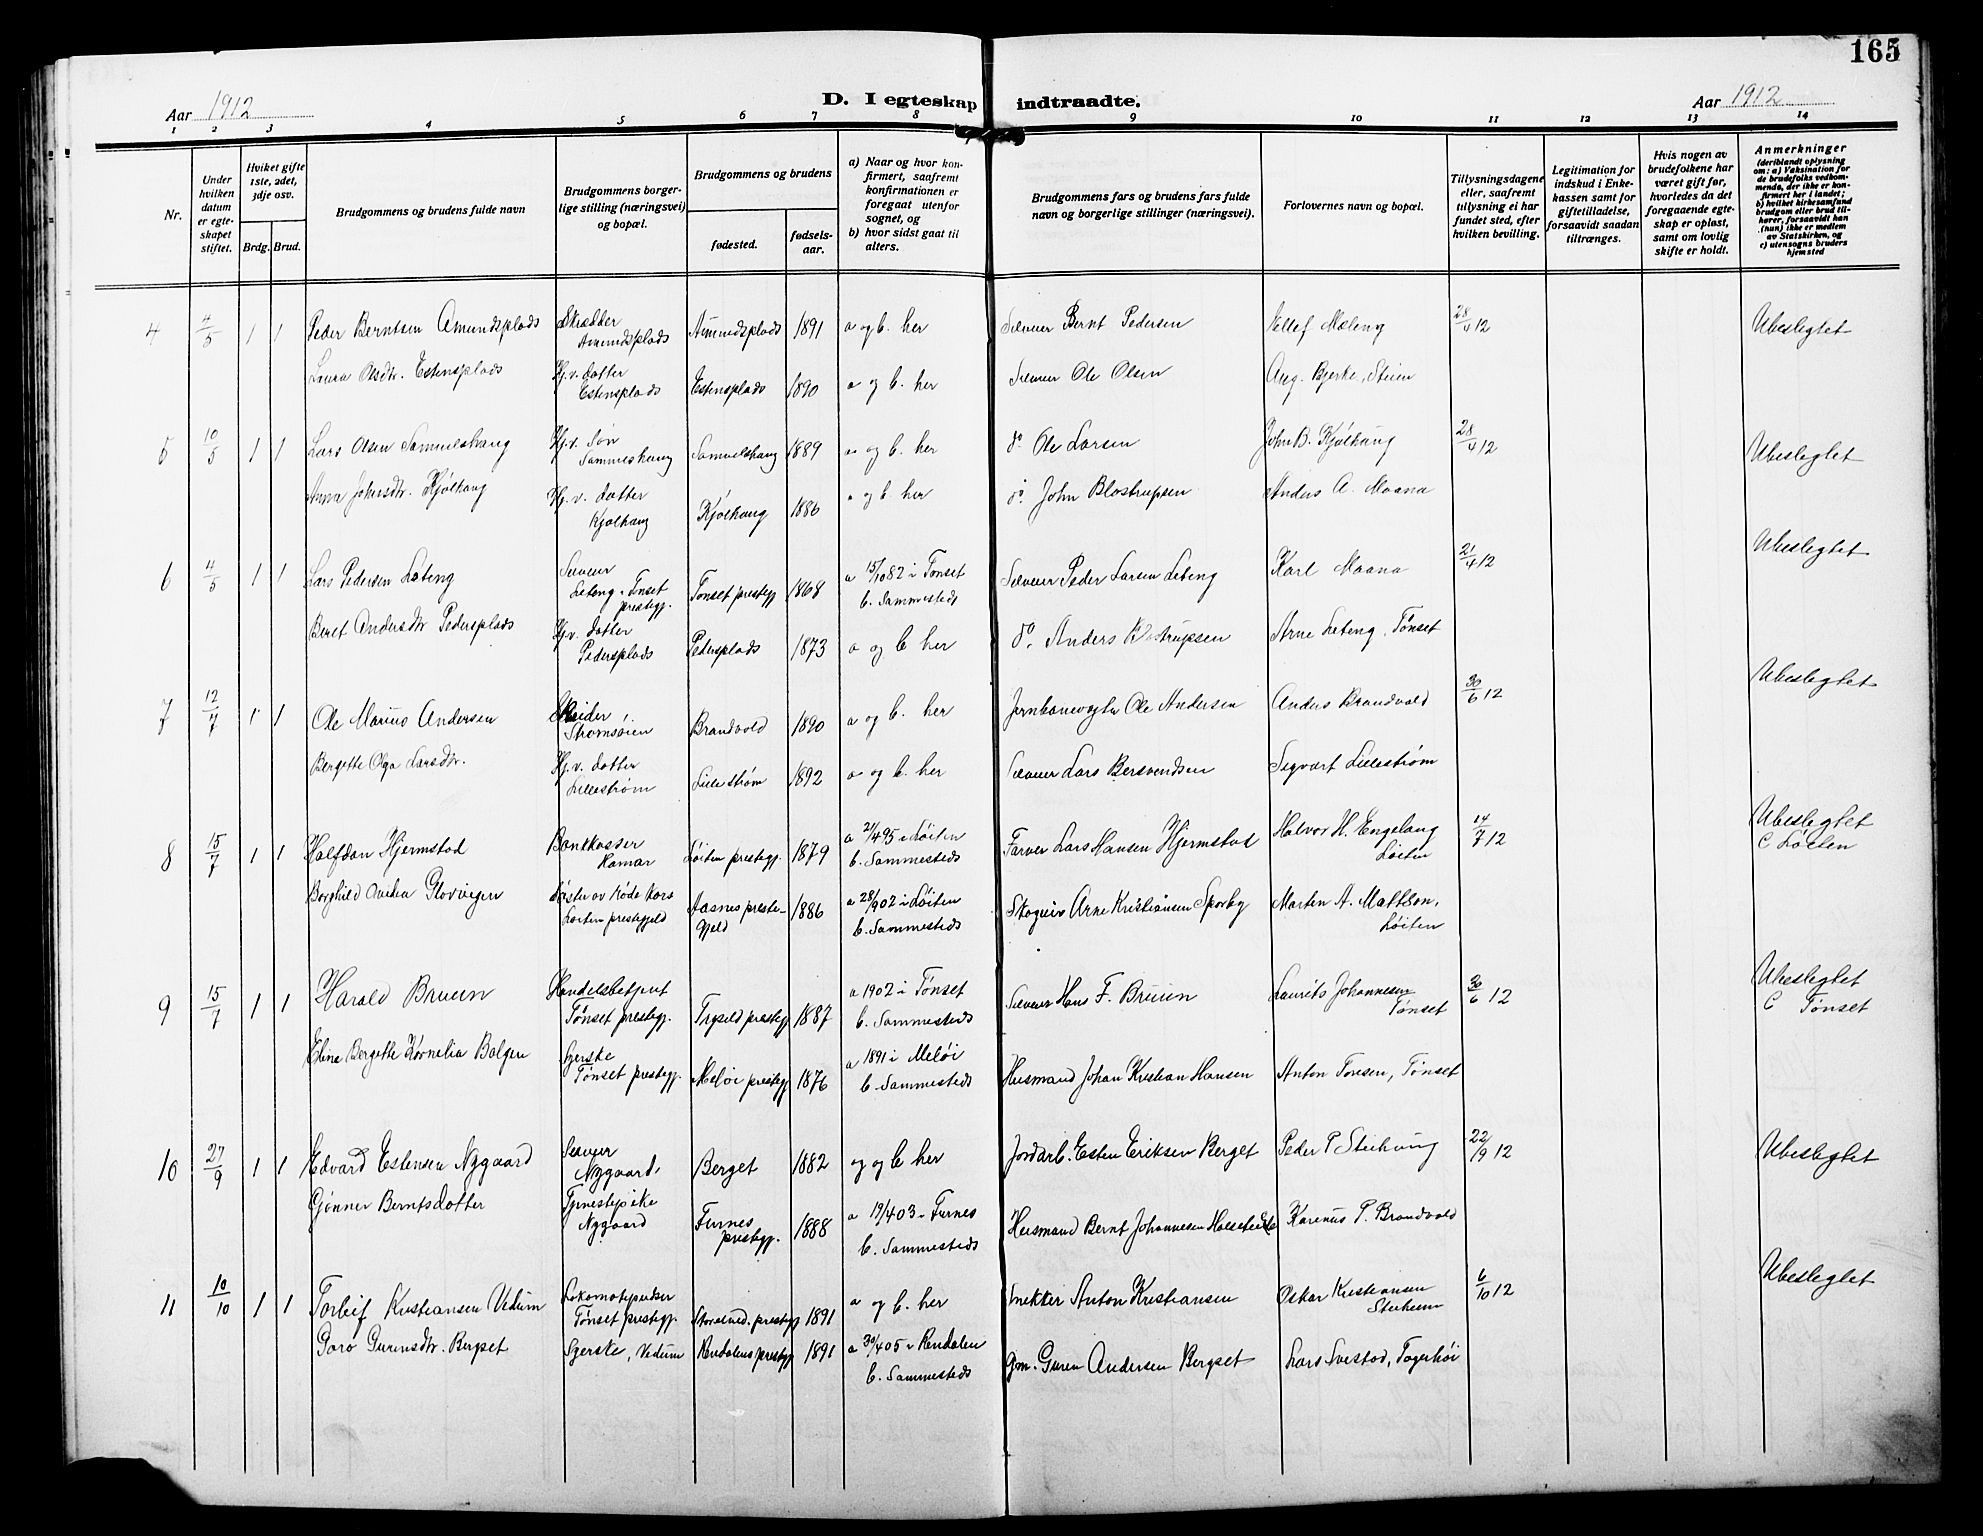 165
Aar 1912
D. I egteskap indtraadte.
Aar 1912
1 2 3 4 5 6 7 8 9 10 11 12 13 14
Nr.
Under
hvilken
datum
er egte-
skapet
stiftet.
Hviket gifte
1ste, 2det,
3dje osv.
Brdg. Brud.
Brudgommens og brudens fulde navn
Brudgommens borger-
lige stilling (næringsvei)
og bopæl.
Brudgommens og brudens
fødested.
fødsels-
aar.
a) Naar og hvor kon-
firmert, saafremt
konfirmationen er
foregaat utenfor
sognet, og
b) hvor sidst gaat til
alters.
Brudgommens fars og brudens fars fulde
navn og borgerlige stillinger (næringsvei).
Forlovernes navn og bopæl.
Tillysningsdagene
eller, saafremt
tillysning ei har
fundet sted, efter
hvilken bevilling.
Legitimation for
indskud i Enke-
kassen samt for
giftetilladelse,
forsaavidt saadan
tiltrænges.
Hvis nogen av
brudefolkene har
været gift før,
hvorledes da det
foregaaende egte-
skap er opløst,
samt om lovlig
skifte er holdt.
Anmerkninger
(deriblandt oplysning
om: a) Vaksination for
de brudefolks vedkom-
mende, der ikke er kon-
firmert her i landet;
b) hvilket kirkesamfund
brudgom eller brud til-
hører, forsaavidt han
(hun) ikke er medlem
av Statskirken, og
c) utensogns bruders
hjemsted
4 4/5 1 1 Peder Berntsen Amundsplads Skrædder Amundsplads Amundsplads 1891 a og b. her Sæveier Bernt Pedersen Ellef Mæleng 28/4 12 Ubeslegtet
Laura Olsdtr. Estensplads Hj.v. datter Estensplads Estensplads 1890 a og b. her Sæveier Ole Olsen Aug. Bjerke, Steien
5 10/5 1 1 Lars Olsen Samuelshaug Hj.v. Søn Sammeshaug Samuelshaug 1889 a og b. her do Ole Larsen John B. Kjølhaug 28/4 12 Ubeslegtet
Anna Johnsdtr. Kjølhaug Hj.v. datter Kjølhaug Kjølhaug 1886 a og b. her do. John Blostrupsen Anders A. Moana
6 4/5 1 1 Lars Pedersen Leteng Sæveier Leteng, Tønset prestegj. Tønset prestegj 1868 a 15/10 82 i Tønset b. Sammesteds Sæveier Peder Larsen Leteng Karl Moana 21/4 12 Ubeslegtet
Beret Andersdtr Pedersplads Hj.v. datter Pedersplads Pedersplads 1873 a og b her do. Anders Blostrupsen Arne Leteng, Tønset
7 12/7 1 1 Ole Marius Andersen Strømsøien Brandvold 1890 a og b. her Jernbanevogter Ole Andersen Anders Brandvold 30/6 12 Ubeslegtet
Bergette Olga Larsdtr. Hj.v. datter Lillestrøm Lillestrøm 1892 a og b. her Sæveier Lars Bersvendsen Sigvart Lillestrøm
8 15/7 1 1 Halfdan Hjermstad Bankkasser Hamar Løiten prestegj. 1879 a 21/4 95 i Løiten b. Sammesteds Farver Lars Hansen Hjermstad Halvor H. Engelaug Løiten 14/7 12 Ubeslegtet C Løelen
Borghild Ovidia Glorvigen Søster av Røde Kors Løiten prestegjeld Aasnes preste-gjeld 1886 a 28/9 02 i Løiten b. Sammesteds Skogeier Arne Kristiansen Sporby Marten A. Mattson, Løiten
9 15/7 1 1 Harald Bruun Handelsbetjent Tønset prestegj. Trysild prestegj 1887 a 1902 i Tønset b. Sammesteds Sæveier Hans F. Bruun Laurits Johannesen Tønset 30/6 12 Ubeslegtet C Tønset
Eline Bergette Kornelia Bolgen Syerske Tønset prestegj. Meløi prestegj 1876 a 1891 i Meløi b. Sammesteds Husmand Johan Kristian Hansen Anton Toresen, Tønset
10 27/9 1 1 Edvard Estensen Nygaard Sæveier Nygaard, Berget 1882 og og b her Jordarb. Esten Eriksen Berget Peder P Steihaug 22/9 12 Ubeslegtet
Gønner Berntsdotter Tjenestepike Nygaard Furnes prestegj. 1888 a 19/4 03 i Furnes b. Sammesteds Husmand Bernt Johannesen Karenus P. Brandvold
11 10/10 1 1 Torleif Kristiansen Vedum Lokomotivpudser Tønset prestegj. Storelved. prestegj 1891 a og b. her Snekker Anton Kristiansen Oskar Kristiansen Steiheim 6/10 12 Ubeslegtet
Goro Gurensdtr. Bergset Syerske, Vedum Rendalens prestegj 1891 a 30/4 05 i Rendalen b. Sammesteds Gm. Guren Andersen Bergset Lars Svestad, Fagerhøi